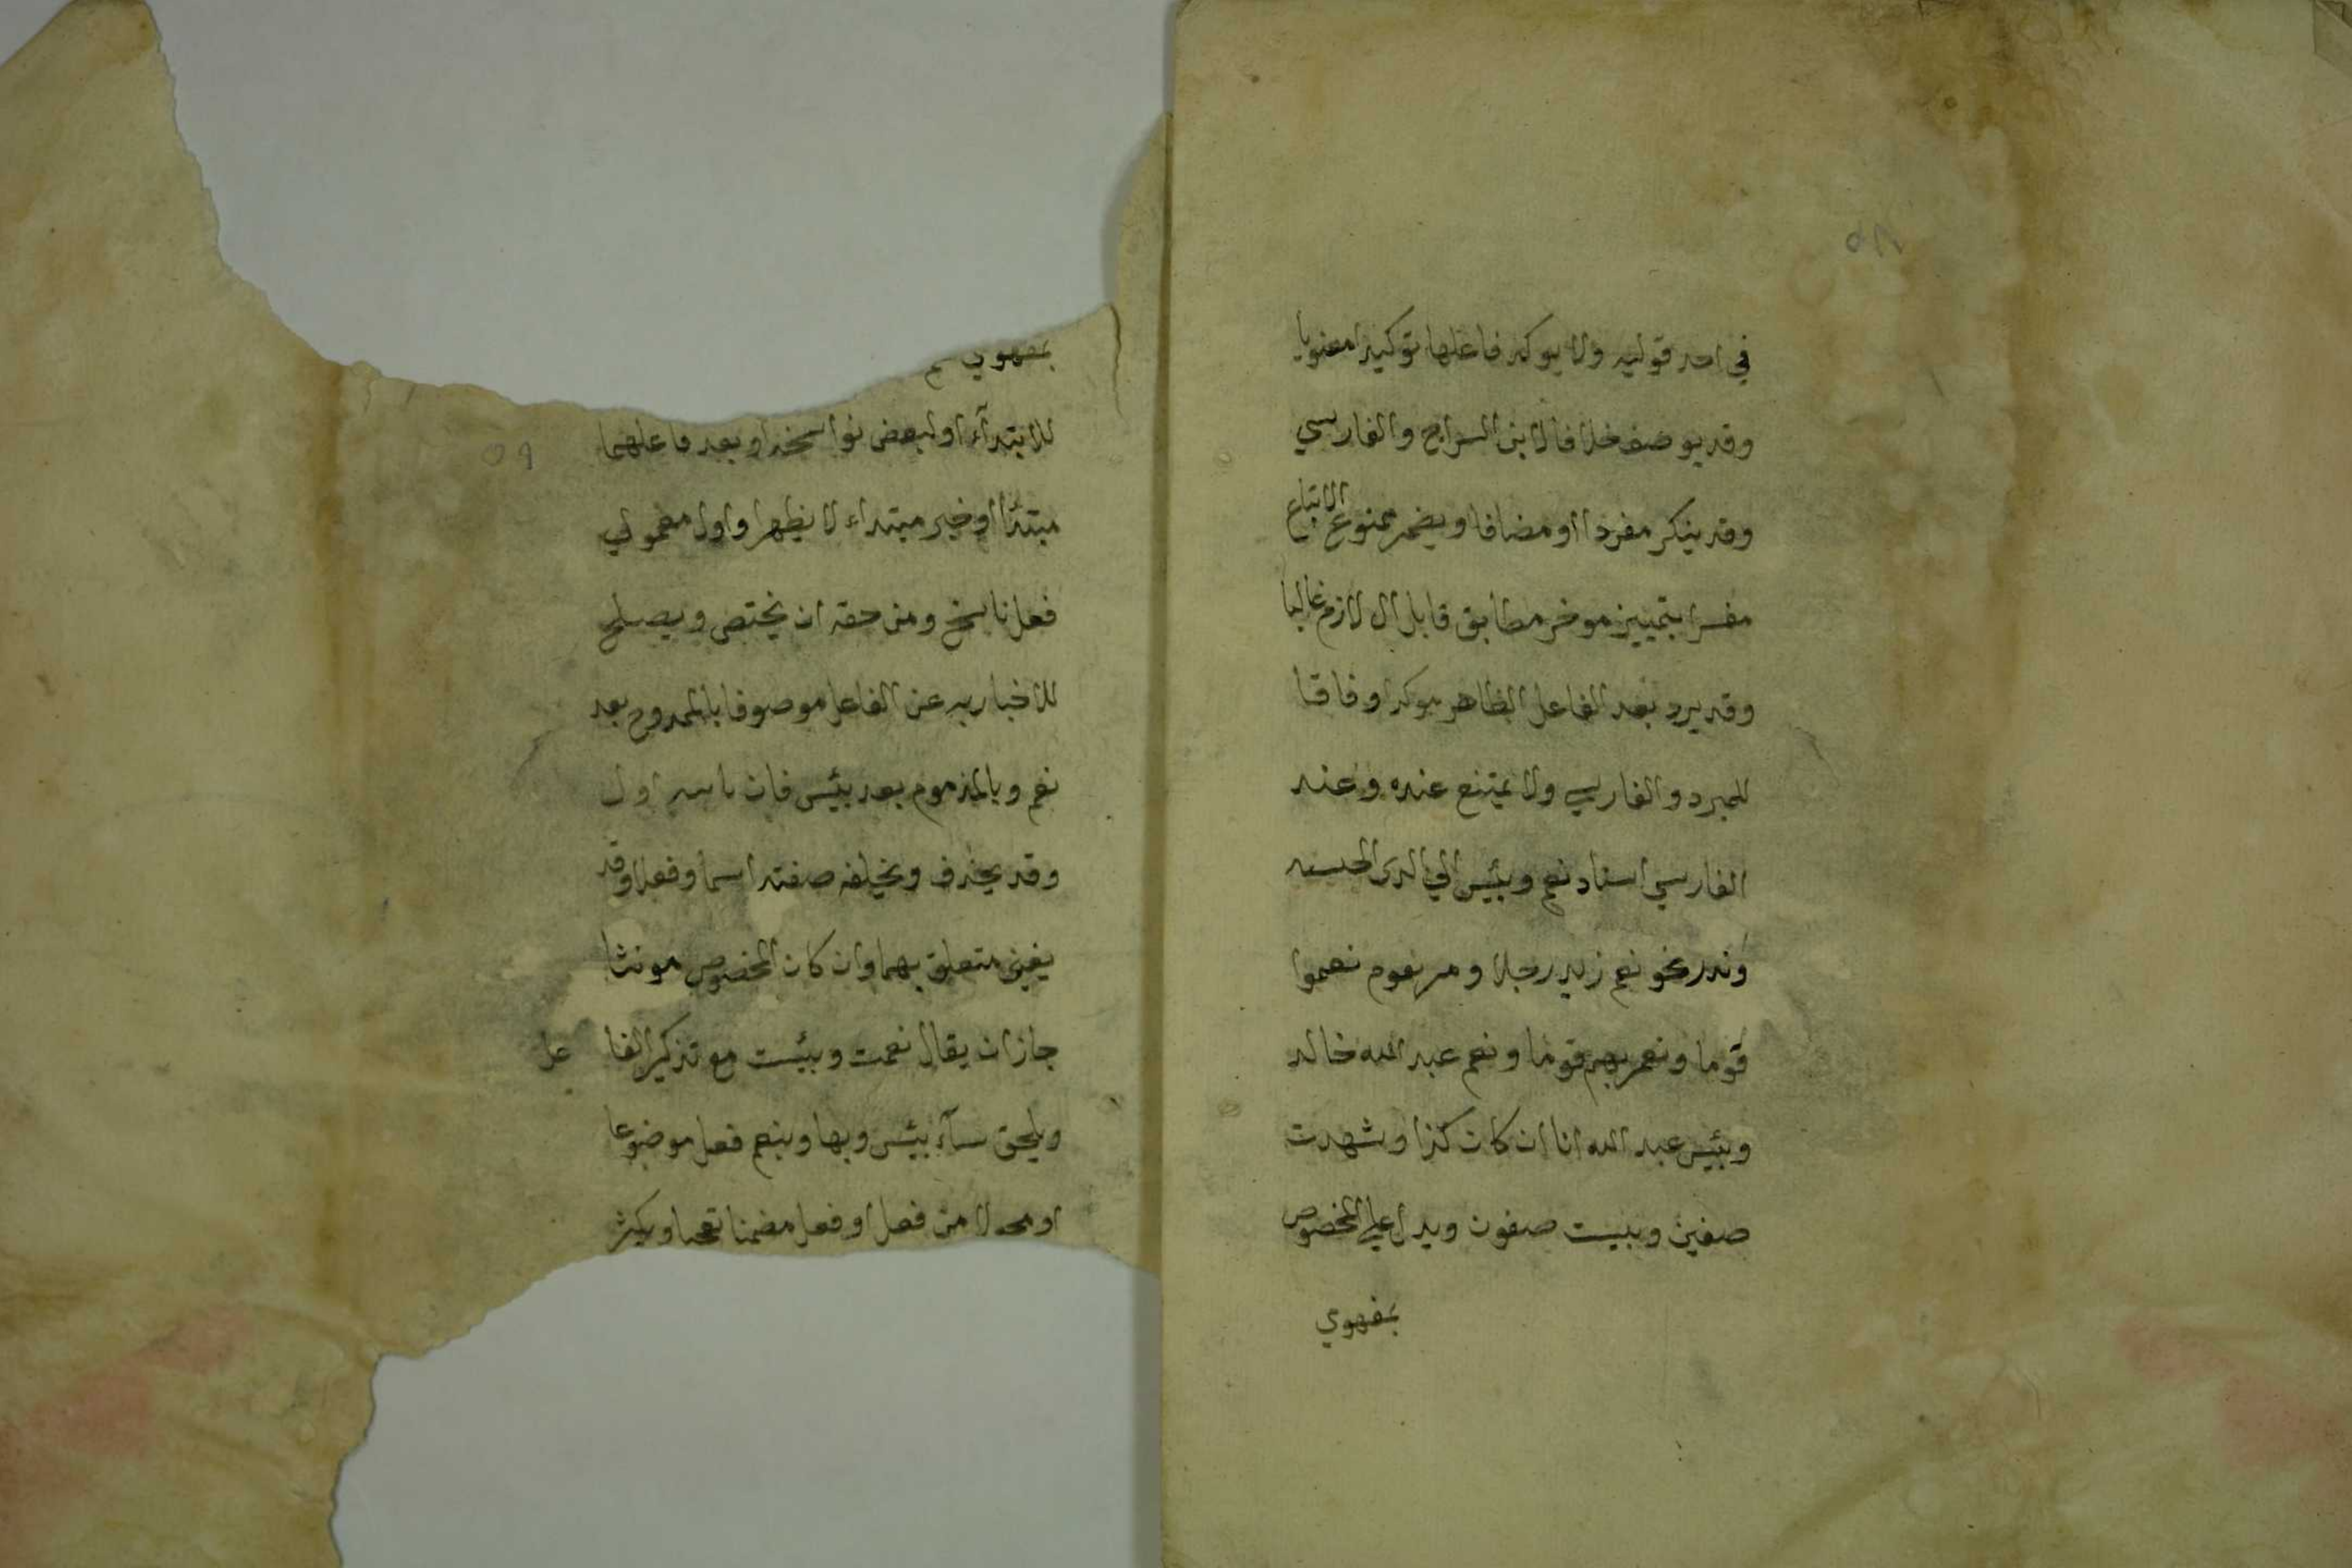 ٥٨
في احد قوليه ولا يوكد فاعلها توكيدا معنويا
وقد يوصف خلافا لابن السراج والفارسي
وقد ينكر مفردا او مضافا ويضمر ممنوع الاتباع
مفسرا بتمييز موخر مطابق قابل ال لازم غالبا
وقد يرد بعد الفاعل الظاهر موكدا وفاقا
للمبرد والفارسي ولا يمتنع عنده وعند
الفارسي اسناد نعم وبئس الي الذى الجنسية
وندر نحو نعم زيد رجلا ومر بقوم نعموا
قوما ونعم بهم قوما ونعم عبد الله خالد
وبئس عبد الله انا ان كان كذا وشهدت
صفين وبيست صفون ويدل علي المخصوص
بمفهومي
بمفهومي نعم
للابتدآء او لبعض نواسخه او بعد فاعلهما
مبتدٔا او خبر مبتداء لا يظهر او اول معمولي
فعل ناسخ ومن حقه ان يختص ويصلح
للاخبار به عن الفاعل موصوفا بالممدوح بعد
نعم وبالمذموم بعد بئس فان باينه اول
وقد يحذف ويخلفه صفته اسما وفعلا وقد
يغني متعلق بهما وان كان المخصوص مونثا
جاز ان يقال نعمت وبئست مع تذكير الفا عل
ويلحق سآء ببئس وبها وبنعم فعل موضوعا
او محولا من فعل او فعل مضمنا تعجبا ويكثر
٥٩